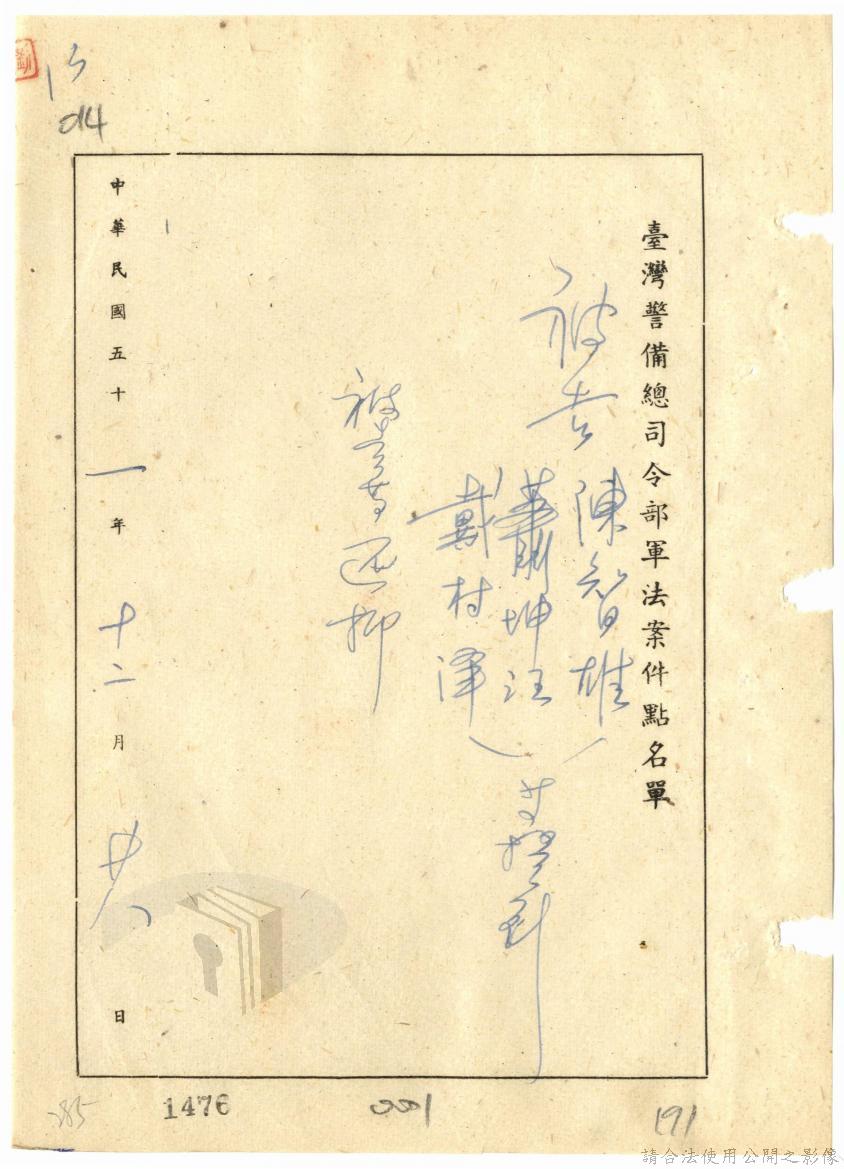 臺灣警備總司令部軍法案件點名單
被告
陳智雄
蕭坤旺
戴村澤
提到
被告等還押
中華民國五十一年十二月廿八日
15
014
285
1476
001
191
請合法使用公開之影像